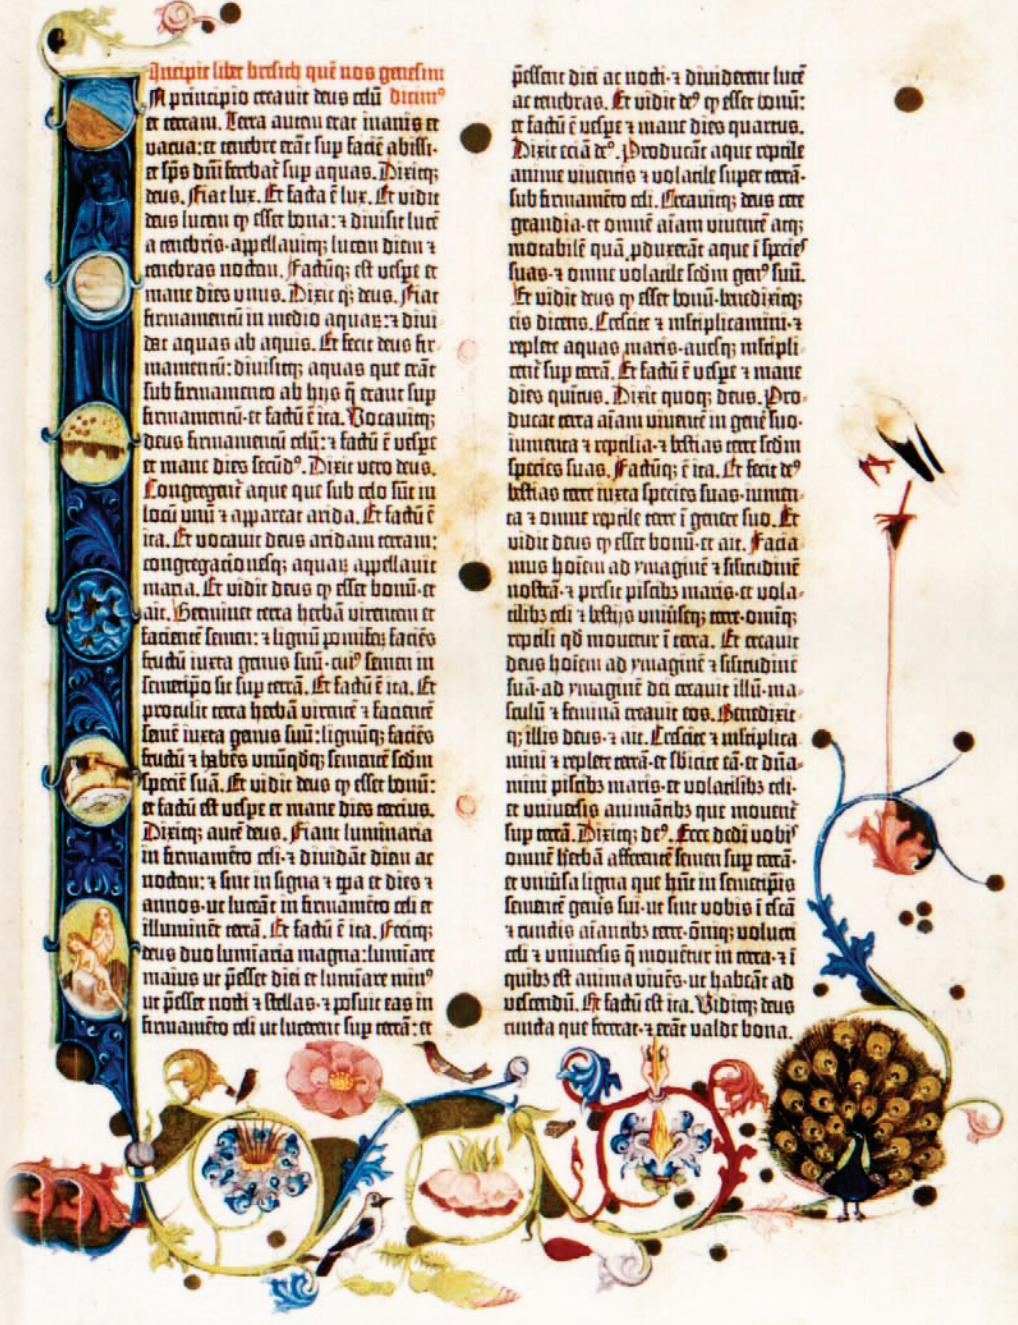 Incipit liber bresich quē nos genesim
In principio creauit deus celū dicimꝰ
et terram. Terra autem erat inanis et
vacua: et tenebre erāt sup faciē abissi·
et sp̄s dn̄i ferebat̄ sup aquas. Dixitqꝫ
deus. Fiat lux. Et facta ē lux. Et vidit
deus lucem ꝙ esset bona: ⁊ diuisit lucē
a tenebris·appellauitqꝫ lucem diem ⁊
tenebras noctem. Factūqꝫ est vespe et
mane dies vnus. Dixit qꝫ deus. Fiat
firmamentū in medio aquaꝝ: ⁊ diui
dat aquas ab aquis. Et fecit deus fir-
mamentū: diuisitqꝫ aquas que erāt
sub firmamento ab hijs q̄ erant sup
firmamentū·et factū ē ita. Vocauitqꝫ
deus firmamentū celū: ⁊ factū ē vespe
et mane dies secūdꝰ. Dixit vero deus.
Congregent̄ aque que sub celo sūt in
locū vnū ⁊ appareat arida. Et factū ē
ita. Et vocauit deus aridam terram:
congregacionesqꝫ aquaꝝ appellauit
maria. Et vidit deus ꝙ esset bonū·et
ait. Germinet terra herbā virentem et
facientē semen: ⁊ lignū pomifeꝝ faciēs
fructū iuxta genus suū·cuiꝰ semen in
semetip̄o sit sup terrā. Et factū ē ita. Et
protulit terra herbā virentē ⁊ facientē
semē iuxta genus suū: lignūqꝫ faciēs
fructū ⁊ habēs vnūqdqꝫ sementē scdm
speciē suā. Et vidit deus ꝙ esset bonū:
et factū est vespe et mane dies tercius.
Dixitqꝫ autē deus. Fiant luminaria
in firmamēto celi·⁊ diuidāt diem ac
noctem: ⁊ sint in signa ⁊ tp̄a et dies ⁊
annos·ut luceāt in firmamēto celi et
illuminēt terrā. Et factū ē ita. Fecitqꝫ
deus duo luminaria magna: lumiāre
maius ut p̄esset diei et lumiāre minꝰ
ut p̄esset nocti ⁊ stellas·⁊ posuit eas in
firmamēto celi ut lucerent sup terrā: et
p̄essent diei ac nocti·⁊ diuiderent lucē
ac tenebras. Et vidit deꝰ ꝙ esset bonū:
et factū ē vespe ⁊ mane dies quartus.
Dixit eciā deꝰ. Producāt aque reptile
anime viuentis ⁊ volatile super terrā·
sub firmamēto celi. Creauitqꝫ deus cete
grandia·et omnē aīam viuentē atqꝫ
motabilē quā ꝓduxerāt aque ī species
suas·⁊ omne volatile scdm genꝰ suū.
Et vidit deus ꝙ esset bonū·benedixitqꝫ
eis dicens. Crescite ⁊ mltiplicamini·⁊
replete aquas maris·auesqꝫ mltipli-
cent̄ sup terrā. Et factū ē vespe ⁊ mane
dies quintus. Dixit quoqꝫ deus. Pro-
ducat terra aīam viuentē in genē suo·
iumenta ⁊ reptilia·⁊ bestias terre scdm
species suas. Factūqꝫ ē ita. Et fecit deꝰ
bestias terre iuxta species suas·iumen-
ta ⁊ omne reptile terre ī genere suo. Et
vidit deus ꝙ esset bonū·et ait. Facia-
mus hoīem ad ymaginē ⁊ similitudinē
nostrā·⁊ presit piscibꝫ maris·et vola-
tilibꝫ celi ⁊ bestijs vniūseqꝫ terre·omniqꝫ
reptili qd mouetur ī terra. Et creauit
deus hoīem ad ymaginē ⁊ similitudinē
suā·ad ymaginē dei creauit illū·ma-
sculū ⁊ feminā creauit eos. Benedixit-
qꝫ illis deus·⁊ ait. Crescite ⁊ mltiplica
mini ⁊ replete terrā·et sbicite eā·et dn̄a-
mini piscibꝫ maris·et volatilibꝫ celi·
et vniuersis animātibꝫ que mouent̄
sup terrā. Dixitqꝫ deꝰ. Ecce dedi vobis
omnē herbā afferentē semen sup terrā·
et vniūsa ligna que hn̄t in semetip̄is
sementē gen̄is sui·ut sint vobis ī escā
⁊ cunctis aīantibꝫ terre·om̄iqꝫ volucri
celi ⁊ vniuersis q̄ mouētur in terra·⁊ ī
quibꝫ est anima viuēs·ut habeāt ad
vescendū. Et factū est ita. Viditqꝫ deus
cuncta que fecerat·⁊ erāt valde bona.